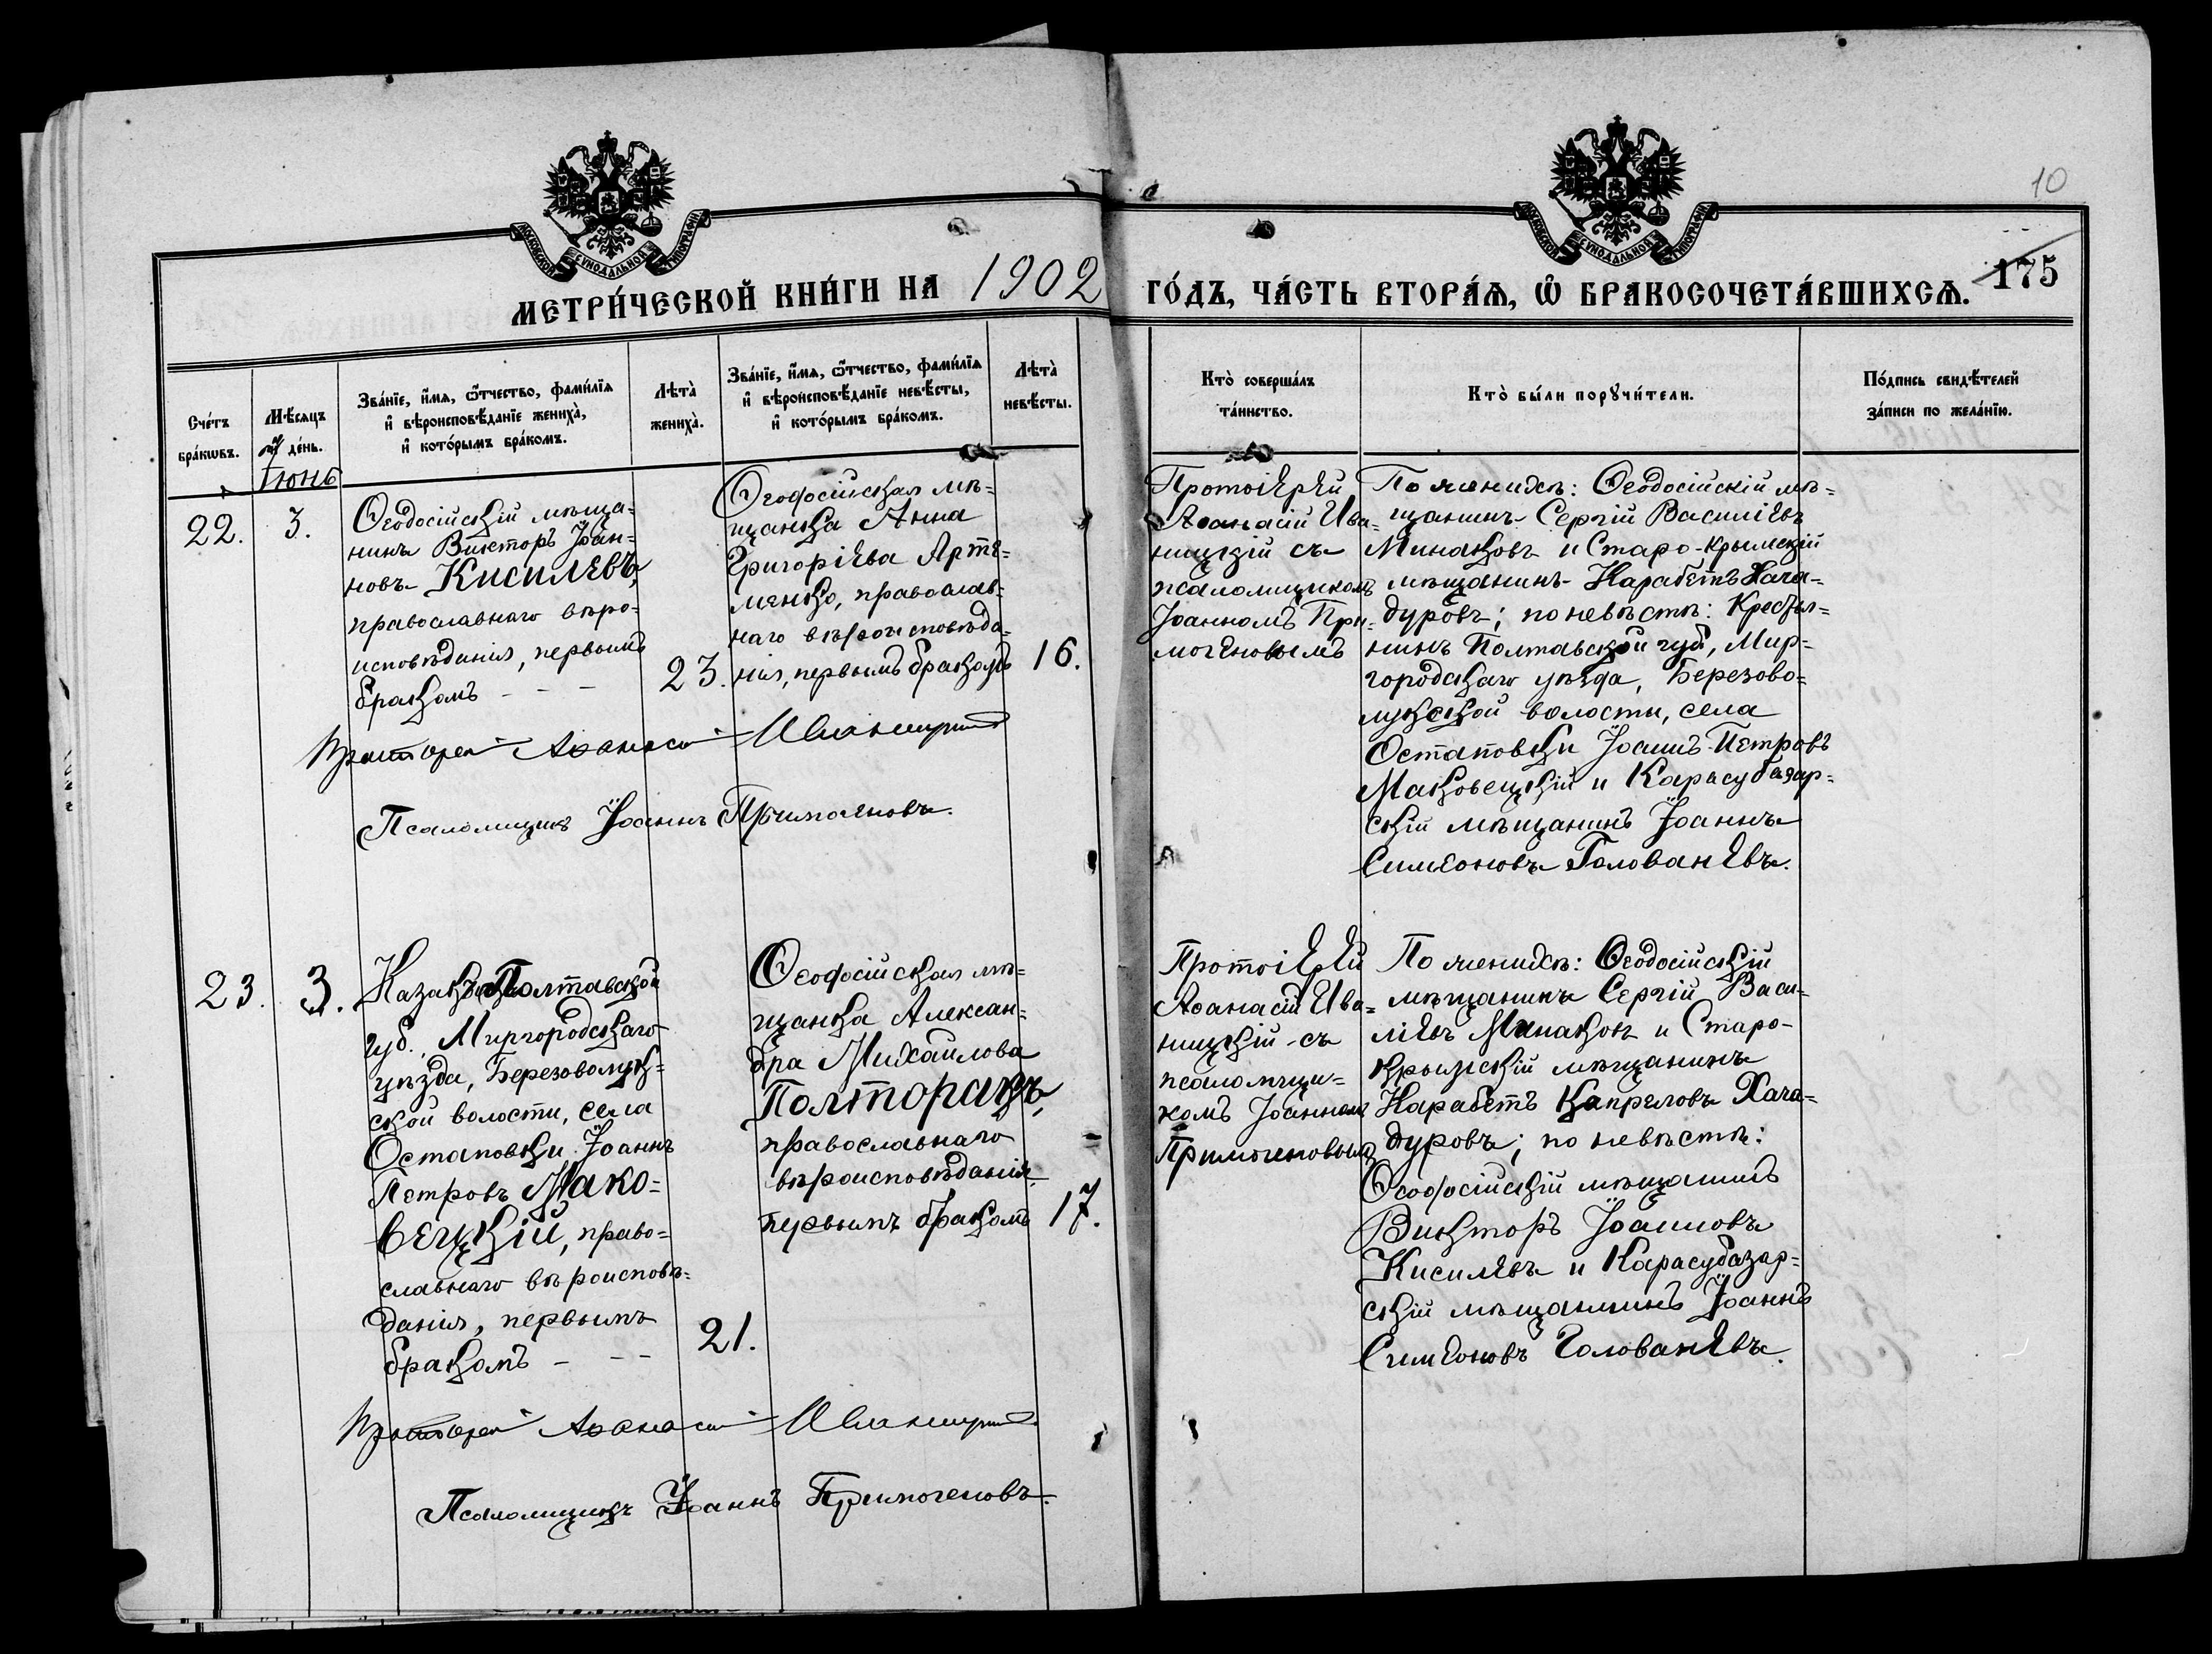 10
МОСКОВСКОЙ СѴНОДАЛЬНОЙ ТИПОГРАФІИ
МОСКОВСКОЙ СѴНОДАЛЬНОЙ ТИПОГРАФІИ
МЕТРИ́ЧЕСКОЙ КНИ́ГИ НА 1902
ГО́ДЪ, ЧА́СТЬ ВТОРА́Ѧ, Ѽ БРАКОСОЧЕТА́ВШИХСѦ. 175
Сче́тъ
бра́кѡвъ.
Мѣ́сѧцъ
и҆ де́нь.
Іюнь
Зва́нїе, и҆́мѧ, ѻ҆́тчество, фами́лїѧ
и҆ вѣроисповѣ́данїе жениха̀,
и҆ кото́рымъ бра́комъ.
Лѣта̀
жениха̀.
Зва́нїе, и҆́мѧ, ѻ҆́тчество, фами́лїѧ
и҆ вѣроисповѣ́данїе невѣ́сты,
и҆ кото́рымъ бра́комъ.
Лѣта̀
невѣ́сты.
Кто̀ соверша́лъ
та́инство.
Кто̀ бы́ли порꙋчи́тели.
По́дпись свидѣ́телей
за́писи по жела́нїю.
22.
3.
Ѳеодосійскій мѣща-
нинъ Викторъ Іоан-
новъ Кисилевъ,
православнаго вѣро-
исповѣданія, первымъ
бракомъ - - -
23.
Ѳеодосійская мѣ-
щанка Анна
Григоріева Арте-
менко, православ-
наго вѣроисповѣда-
нія, первымъ бракомъ
16.
Протоіерей
Аѳанасій Ива-
ницкій съ
псаломщикомъ
Іоанномъ При-
могеновымъ
По женихѣ: Ѳеодосійскій мѣ-
щанинъ Сергій Василіевъ
Минаковъ и Старо-Крымскій
мѣщанинъ Карабетъ Хача-
дуровъ; по невѣстѣ: Крестья-
нинъ Полтавской губ., Мир-
городскаго уѣзда, Березово-
лукской волости, села
Остаповки Іоаннъ Петровъ
Маковецкій и Карасубазар-
скій мѣщанинъ Іоаннъ
Симеоновъ Голованевъ.
Протоіерей Аѳанасій Иваницкій
Псаломщикъ Іоаннъ Примогеновъ.
23.
3.
Казакъ Полтавской
губ., Миргородскаго
уѣзда, Березоволук-
ской волости, села
Остаповки Іоаннъ
Петровъ Мако-
вецкій, право-
славнаго вѣроисповѣ-
данія, первымъ
бракомъ - - -
21.
Ѳеодосійская мѣ-
щанка Алексан-
дра Михайлова
Полторакъ,
православнаго
вѣроисповѣданія,
первымъ бракомъ
17.
Протоіерей
Аѳанасій Ива-
ницкій съ
псаломщи-
комъ Іоанномъ
Примогеновымъ
По женихѣ: Ѳеодосійскій
мѣщанинъ Сергій Васи-
ліевъ Минаковъ и Старо-
Крымскій мѣщанинъ
Карабетъ Капреловъ Хача-
дуровъ; по невѣстѣ:
Ѳеодосійскій мѣщанинъ
Викторъ Іоанновъ
Кисилевъ и Карасубазар-
скій мѣщанинъ Іоаннъ
Симеоновъ Голованевъ.
Протоіерей Аѳанасій Иваницкій
Псаломщикъ Іоаннъ Примогеновъ.